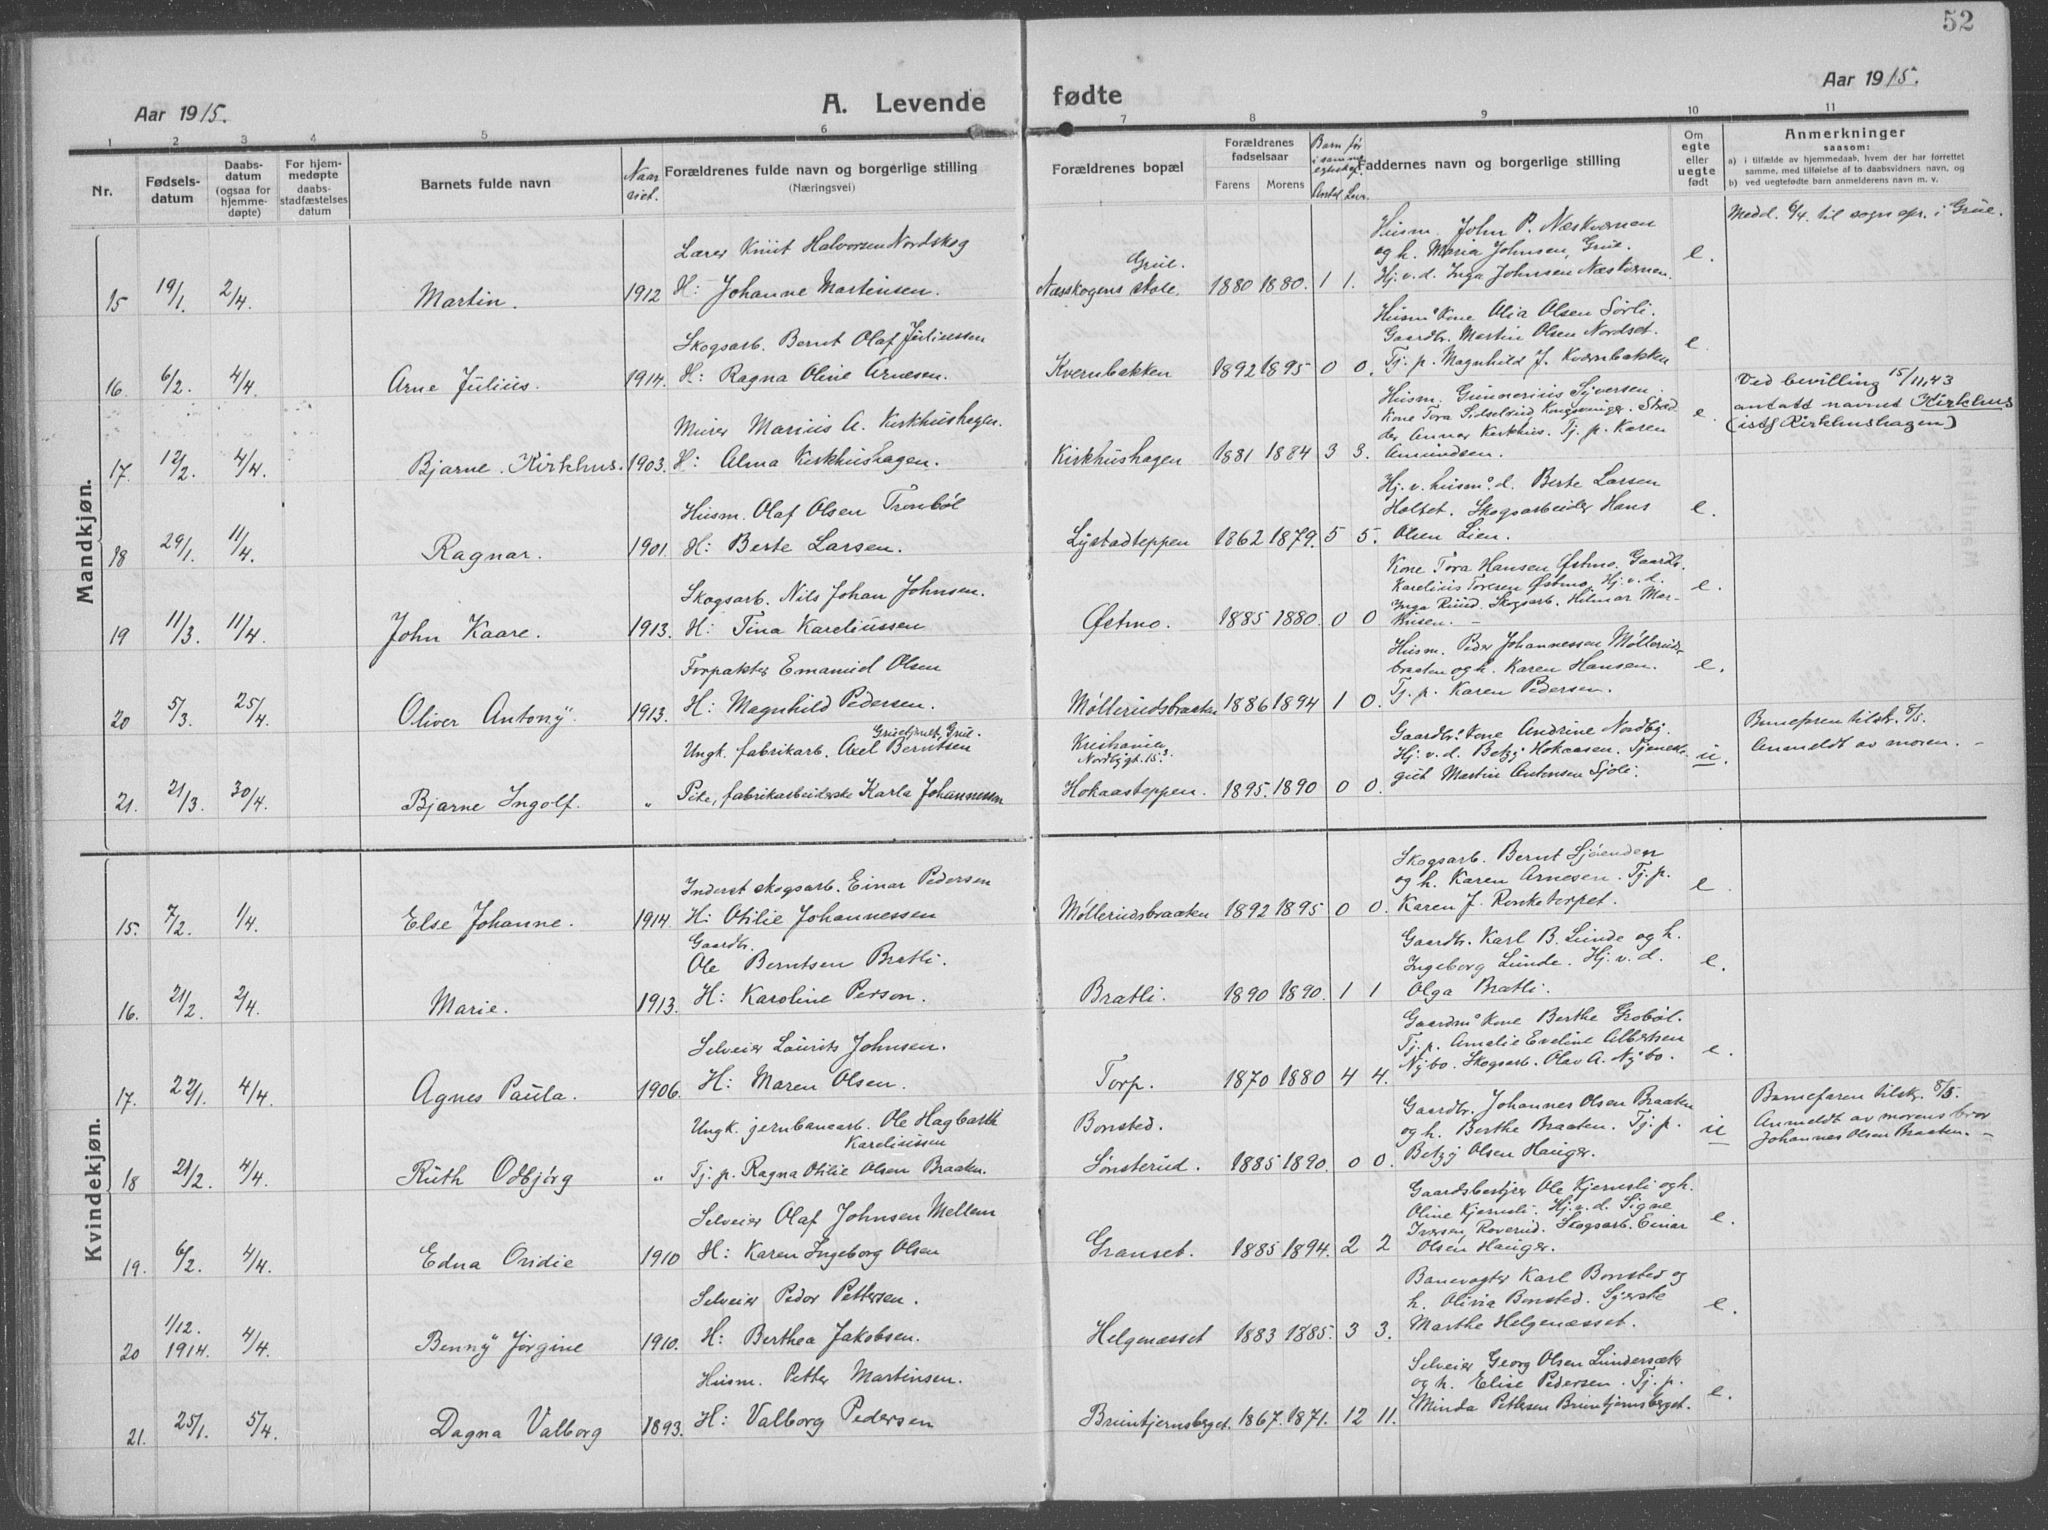 52
Aar 1915.
A. Levende fødte
Aar 1915.
1 2 3 4 5 6 7 8 9 10 11
Nr.
Fødsels-
datum
Daabs-
datum
(ogsaa for
hjemme-
døpte)
For hjem-
medøpte
daabs-
stadfæstelses
datum
Barnets fulde navn
Naar
viet.
Forældrenes fulde navn og borgerlige stilling
(Næringsvei)
Forældrenes bopæl
Forældrenes
fødselsaar
Farens Morens
Barn før
i samme
egteskap.
Antal Lev.
Faddernes navn og borgerlige stilling
Om
egte
eller
uegte
født
Anmerkninger
saasom:
a) i tilfælde av hjemmedaab, hvem der har forrettet
samme, med tilføielse af to daabsvidners navn, og
b) ved uegtefødte barn anmelderens navn m. v.
Mandkjøn.
Medd. 6/4. til sogn epr. i Grue.
Lærer Knut Halvorsen Nordskog
Husm. John P. Næskvernen
og h. Maria Johnsen, Grue.
Hj. v. d. Inga Johnsen Næskvernen.
Grue.
15 19/1. 2/4. Martin. 1912 H: Johanne Martinsen. Næsskogens skole. 1880 1880. 1 1. e.
Skogsarb. Bernt Olaf Juliussen
Husm's Kone Olia Olsen Sørli.
Gaardbr. Martin Olsen Nordset.
Tj. p. Magnhild J. Kvernbakken
16. 6/2. 4/4. Arne Julius. 1914. H: Ragna Oline Arnesen. Kvernbakken 1892 1895 0 0. e.
Ved bevilling 15/11.43
antatt navnet Kirkhus
(istf Kirkhushagen)
Murer Marius A. Kirkhushagen.
Husm. Gunnerius Syversen.
Kone Tora Sidselrud Kongsvinger. Skræd
der Annar Kirkhus. Tj. p. Karen
Amundsen.
17. 12/2. 4/4. Bjarne. Kirkhus. 1903. H: Alma Kirkhushagen. Kirkhushagen 1881 1884 3 3. e.
Husm. Olaf Olsen Trombøl
Hj. v. husm's d. Berte Larsen
Holtet. Skogsarbeider Hans
Olsen Lien.
18 29/1. 11/4. Ragnar. 1901. H: Berte Larsen. Lystadteppen 1862 1879. 5 5. e.
Skogsarb. Nils Johan Johnsen.
Kone Tora Hansen Østmo. Gaardbr.
Karelius Toresen Østmo, Hj. v. d.
Inga Ruud. Skogsarb. Hilmar Mar-
tinsen. –
19 11/3. 11/4. John Kaare. 1913. H: Tina Kareliussen Østmo. 1885 1880. 0 0 e.
Forpakter Emanuel Olsen
Husm. Peder Johannessen Møllerud-
braaten og h. Karen Hansen.
Tj. p. Karen Pedersen.
20 5/3. 25/4. Oliver Antony. 1913. H: Magnhild Pedersen. Møllerudsbraaten 1886 1894 1 0. e.
Ungk. fabrikarb. Axel Berntsen
Grue.
Kristiania
Nordbygt. 15.3
Gaardbr's Kone Andrine Nordby.
Hj. v. d. Betzy Hokaasen. Tjeneste-
gut Martin Antonsen Sjøli.
Barnefaren tilskr. 8/5.
Anmeldt av moren. –
21. 21/3. 30/4. Bjarne Ingolf. „ Pike, fabrikarbeiderske Karla Johannessen Hokaasteppen. 1895. 1890 0 0. u.
Kvindekjøn.
Inderst skogsarb. Einar Pedersen
Skogsarb. Bernt Sjøenden
og h. Karen Arnesen. Tj. p.
Karen J. Rensketorpet.
15. 7/2. 1/4. Else Johanne. 1914. H: Otilie Johannessen Møllerudsbraaten 1892 1895 0 0. e.
Gaardbr.
Ole Berntsen Bratli.
Gaardbr. Karl B. Lunde og h.
Ingeborg Lunde. Hj. v. d.
Olga Bratli.
16. 21/2. 2/4. Marie. 1913. H: Karoline Person. Bratli. 1890 1890. 1 1 e.
Selveier Laurits Johnsen.
Gaardm's Kone Berthe Grobøl.
Tj. p. Amelie Eveline Albertsen
Nybo. Skogsarb. Olav A. Nybo.
17. 22/1. 4/4. Agnes Paula. 1906. H: Maren Olsen. Torp. 1870 1880 4 4. e.
Ungk. jernbanearb. Ole Hagbarth
Kareliussen
Bonsted.
Gaardbr. Johannes Olsen Braaten
og h. Berthe Braaten. Tj. p.
Betzy Olsen Hauger.
Barnefaren tilskr. 8/5.
Anmeldt av morens bror
Johannes Olsen Braaten. –
18 21/2. 4/4. Ruth Odbjørg „ Tj. p. Ragna Otilie Olsen Braaten. Sønsterud. 1885 1890. 0 0. u
Selveier Olaf Johnsen Mellem
Gaardsbestyrer Ole Kjernsli og h.
Oline Kjernsli. Hj. v. d. Signe
Iversen Roverud. Skogsarb. Einar
Olsen Hauger.
19. 6/2. 4/4. Edna Oridie 1910 H: Karen Ingeborg Olsen Granset. 1885 1894. 2 2 e.
Selveier Peder Pettersen.
Banevogter Karl Bonsted og
h. Olivia Bonsted. Syerske
Marthe Helgenæsset.
20 1/12. 1914. 4/4. Benny Jørgine 1910. H: Berthea Jakobsen. Helgenæsset 1883 1885. 3 3. e.
Husm. Petter Martinsen.
Selveier Georg Olsen Lundersæter
og h. Elise Pedersen. Tj. p.
Minda Pettersen Bruntjernsberget.
21. 25/1. 5/4. Dagna Valborg 1893. H: Valborg Pedersen Bruntjernsberget. 1867. 1871. 12 11. e.